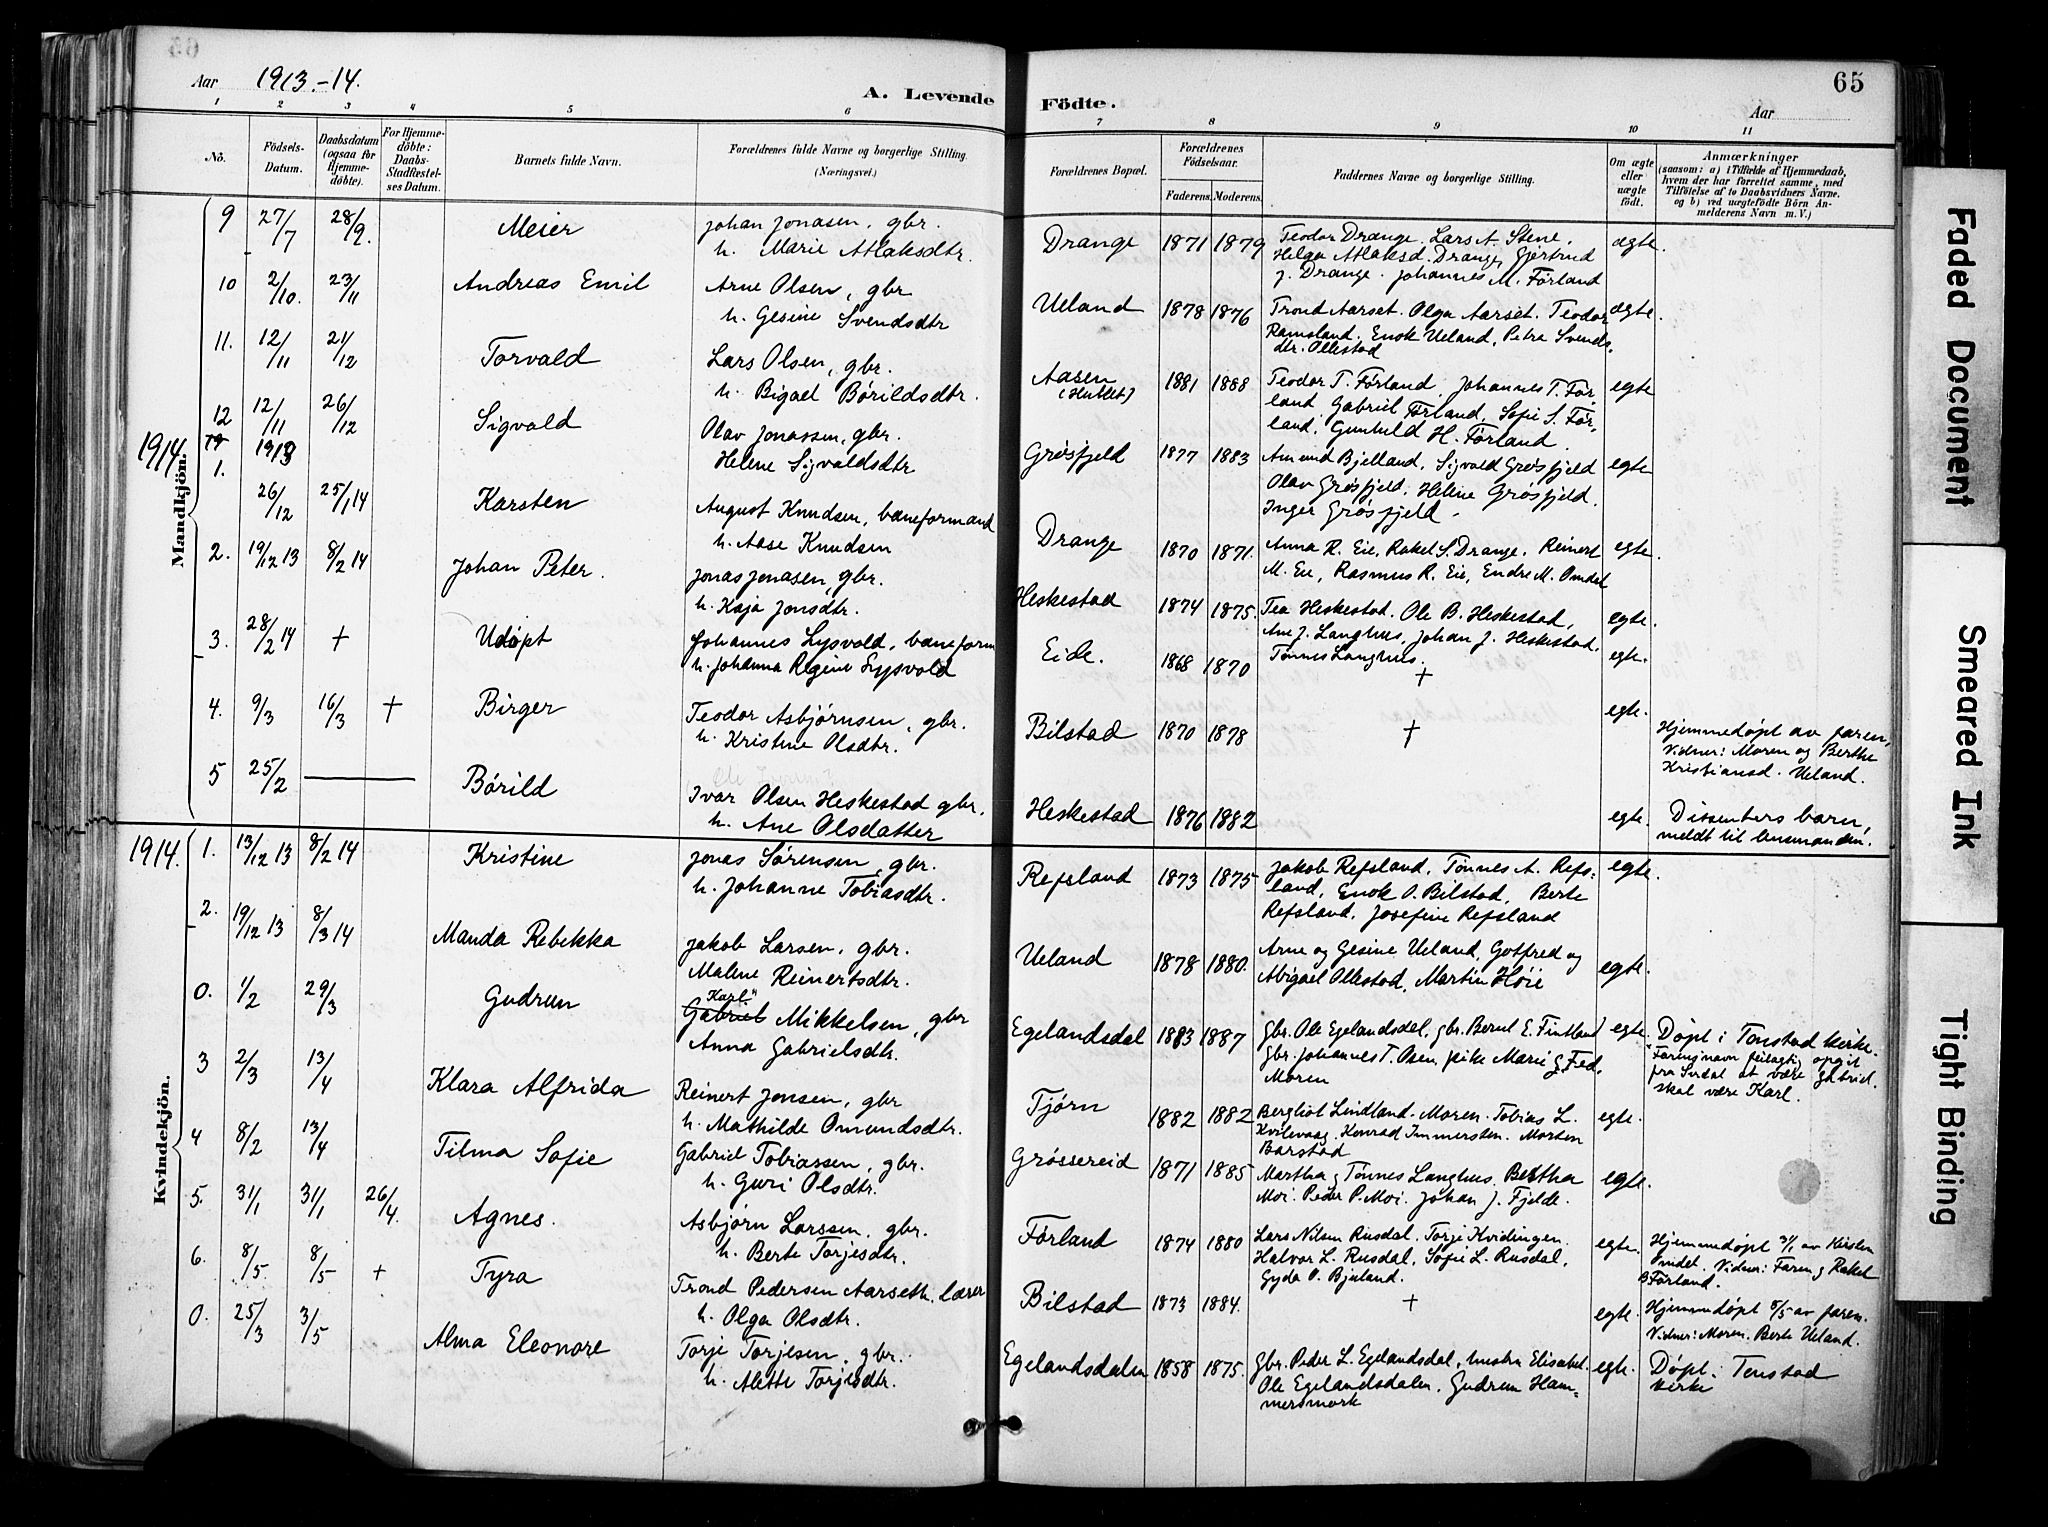 65
Aar 1913.-14.
A. Levende Födte.
Aar
1 2 3 4 5 6 7 8 9 10 11
No.
Födsels-Datum.
Daabsdatum (ogsaa for Hjemmedöbte).
For Hjemmedöbte: Daabs-Stadfæstelses Datum.
Barnets fulde Navn.
Forældrenes fulde Navne og borgerlige Stilling. (Næringsvei.)
Forældrenes Bopæl.
Forældrenes Födselsaar.
Faderens. Moderens.
Faddernes Navne og borgerlige Stilling.
Om ægte eller uægte födt.
Anmærkninger
(saasom: a) i Tilfælde af Hjemmedaab, hvem der har forrettet samme, med Tilföielse af to Daabsvidners Navne, og b) ved uægtefödte Börn Anmelderens Navn m. V.)
Mandkjön.
9 27/7 28/9. Meier Johan Jonasen, gbr. h. Marie Atlaksdtr. Drange 1871 1879 Teodor Drange. Lars A. Stene. ægte.
Helga Atlaksd. Drange, Gjertrud
J. Drange. Johannes M. Førland
10 2/10. 23/11 Andreas Emil Arne Olsen, gbr h. Gesine Svendsdtr Ueland 1878 1876 Trond Aarset. Olga Aarset. Teodor ægte.
Ramsland, Enok Ueland, Petra Svends-
dtr. Ollestad
11. 12/11 21/12 Torvald Lars Olsen, gbr. h. Bigael Børildsdtr. Aasen (Hutlet) 1881 1888 Teodor T. Førland, Johannes T. Før- egte
land, Gabriel Førland, Sofie S. Før-
land, Gunhild H. Førland.
12 12/11 26/12 Sigvald Olav Jonassen, gbr. Helene Sigvaldsdtr Grøsfjeld 1877 1883 Amund Bjelland, Sigvald Grøsfjeld egte
Olav Grøsfjeld, Helene Grøsfjeld.
Inger Grøsfjeld.
1914. 1913
1. 26/12 25/1 14 Karsten August Knudsen, baneformand h. Aase Knudsen Drange 1870 1871. Anna R. Eie, Rakel S. Drange. Reinert egte.
M. Eie, Rasmus R. Eie, Endre M. Omdal
2. 19/12 13 8/2 14 Johan Peter. Jonas Jonasen, gbr. h. Kaja Jonsdtr. Heskestad 1874 1875. Tea Heskestad. Ole B. Heskestad, egte.
Ane J. Langhus, Johan J. Heskestad.
Tønnes Langhus.
3. 28/2 14 + Udøpt Johannes Lysvold, baneform h. Johanna Regine Lysvold Eide. 1868 1870 + egte.
4. 9/3 16/3 + Birger Teodor Asbjørnsen, gbr. h. Kristine Olsdtr. Bilstad 1870 1878 + egte. Hjemmedøpt av faren,
Vidner: Moren og Berthe
Kristiansd. Ueland.
5 25/2 Børild Ivar Olsen Heskestad gbr. h. Ane Olsdatter Heskestad 1876 1882 egte. Dissenters barn,
meldt til lensmanden.
1914. Kvindekjön.
1. 13/12 13 8/2 14 Kristine Jonas Sørensen, gbr. h. Johanne Tobiasdtr. Refsland 1873 1875 Jakob Refsland, Tønnes A. Refs- egte.
land, Enok O. Bilstad, Berte
Refsland, Josefine Refsland
2. 19/12 13 8/3 14 Manda Rebekka Jakob Larsen, gbr. Malene Reinertsdtr. Ueland 1878 1880. Arne og Gesine Ueland, Gotfred og egte.
Abigael Ollestad, Martin Høie
0. 1/2 29/3 Gudrun Gabriel Karl" Mikkelsen, gbr Anna Gabrielsdtr. Egelandsdal 1883 1887 Gbr. Ole Egelandsdal, gbr. Bernt E. Fintland egte. Døpt i Tonstad kirke.
Gbr. Johannes T. Osen, pike Marie G. Fed,
Moren
"Farens navn feilagtig opgit
fra Sirdal at være Gabriel.
skal være Karl.
3 2/3 13/4 Klara Alfrida Reinert Jonsen, gbr h. Mathilde Omundsdtr. Tjørn 1882 1882 Bergliot Lindland. Moren. Tobias L. egte.
Kvilevaag. Konrad Immersten. Morten
Barstad
4 8/2 13/4 Tilma Sofie Gabriel Tobiassen, gbr. h. Guri Olsdtr. Grøssereid 1871 1885 Martha g Tønnes Langhus. Bertha egte.
Moi. Peder P. Moi. Johan J. Fjelde.
5. 31/1 31/1 26/4. Agnes. Asbjørn Larssen, gbr. h. Berte Torjesdtr. Førland 1874 1880 Lars Nilsen Rusdal, Torje Kvidingen. egte. Hjemmedøpt 31/1 av Kirsten
Halvor L. Rusdal, Sofie L. Rusdal,
Gyda O. Bjuland.
Omdet. Vidner: Faren g Rakel
B Førland.
6. 8/5 8/5 + Tyra Trond Pedersen Aarseth. lærer h. Olga Olsdtr. Bilstad 1873 1884. + egte. Hjemmedøpt 8/5 av faren.
Vidner: Moren. Berte Ueland.
0. 25/3 3/5 Alma Eleonore Torje Torjesen, gbr. h. Alette Torjesdtr. Egelandsdalen 1858 1875. Gbr. Peder L. Egelandsdal, hustru Elisabet. egte. Døpt i Tonstad
Ole Egelandsdalen, Gudrun Ham-
mersmark
kirke
Faded Document
Smeared Ink
Tight Binding